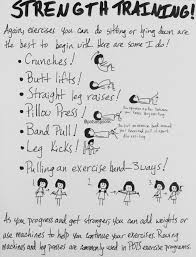 STRENGTH TRAINING!
Again, exercises you can do sitting or lying down are
the best to begin with. Here are some I do!
• Crunches!
• Butt lifts!
• Straight leg raises!
• Pillow Press!
• Band Pull!
• Leg Kicks!
• Pulling an exercise band - 3 ways!
1. 2. 3.
As you progress and get stronger, you can add weights or
use machines to help you continue your exercises. Rowing
machines and leg presses are commonly used in POTS exercise programs.